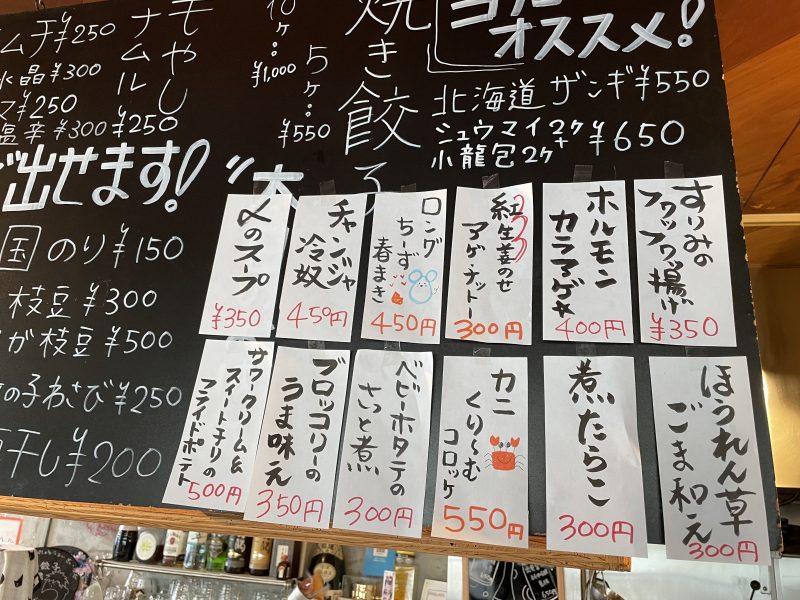 オススメ!
北海道 ザンギ ¥550
シュウマイ2ケ+
小龍包2ケ
¥650
焼き餃子
10ケ:
¥1,000
5ケ:
¥550
もやし
ナムル
¥250
ムチ ¥250
水晶 ¥300
¥250
塩辛 ¥300
出せます!
国 のり ¥150
枝豆 ¥300
が枝豆 ¥500
の子わさび ¥250
干し ¥200
すりみの
フワッフワッ揚げ
¥350
ホルモン
カラアゲ
400円
紅生姜のせ
アゲナットー
300円
ロング
ちーず
春まき
450円
チャンジャ
冷奴
450円
〆のスープ
¥350
ほうれん草
ごま和え
300円
煮たらこ
300円
カニ
くり〜む
コロッケ
550円
ベビーホタテの
さっと煮
300円
ブロッコリーの
うま味え
350円
サワークリーム&
スイートチリの
フライドポテト
500円